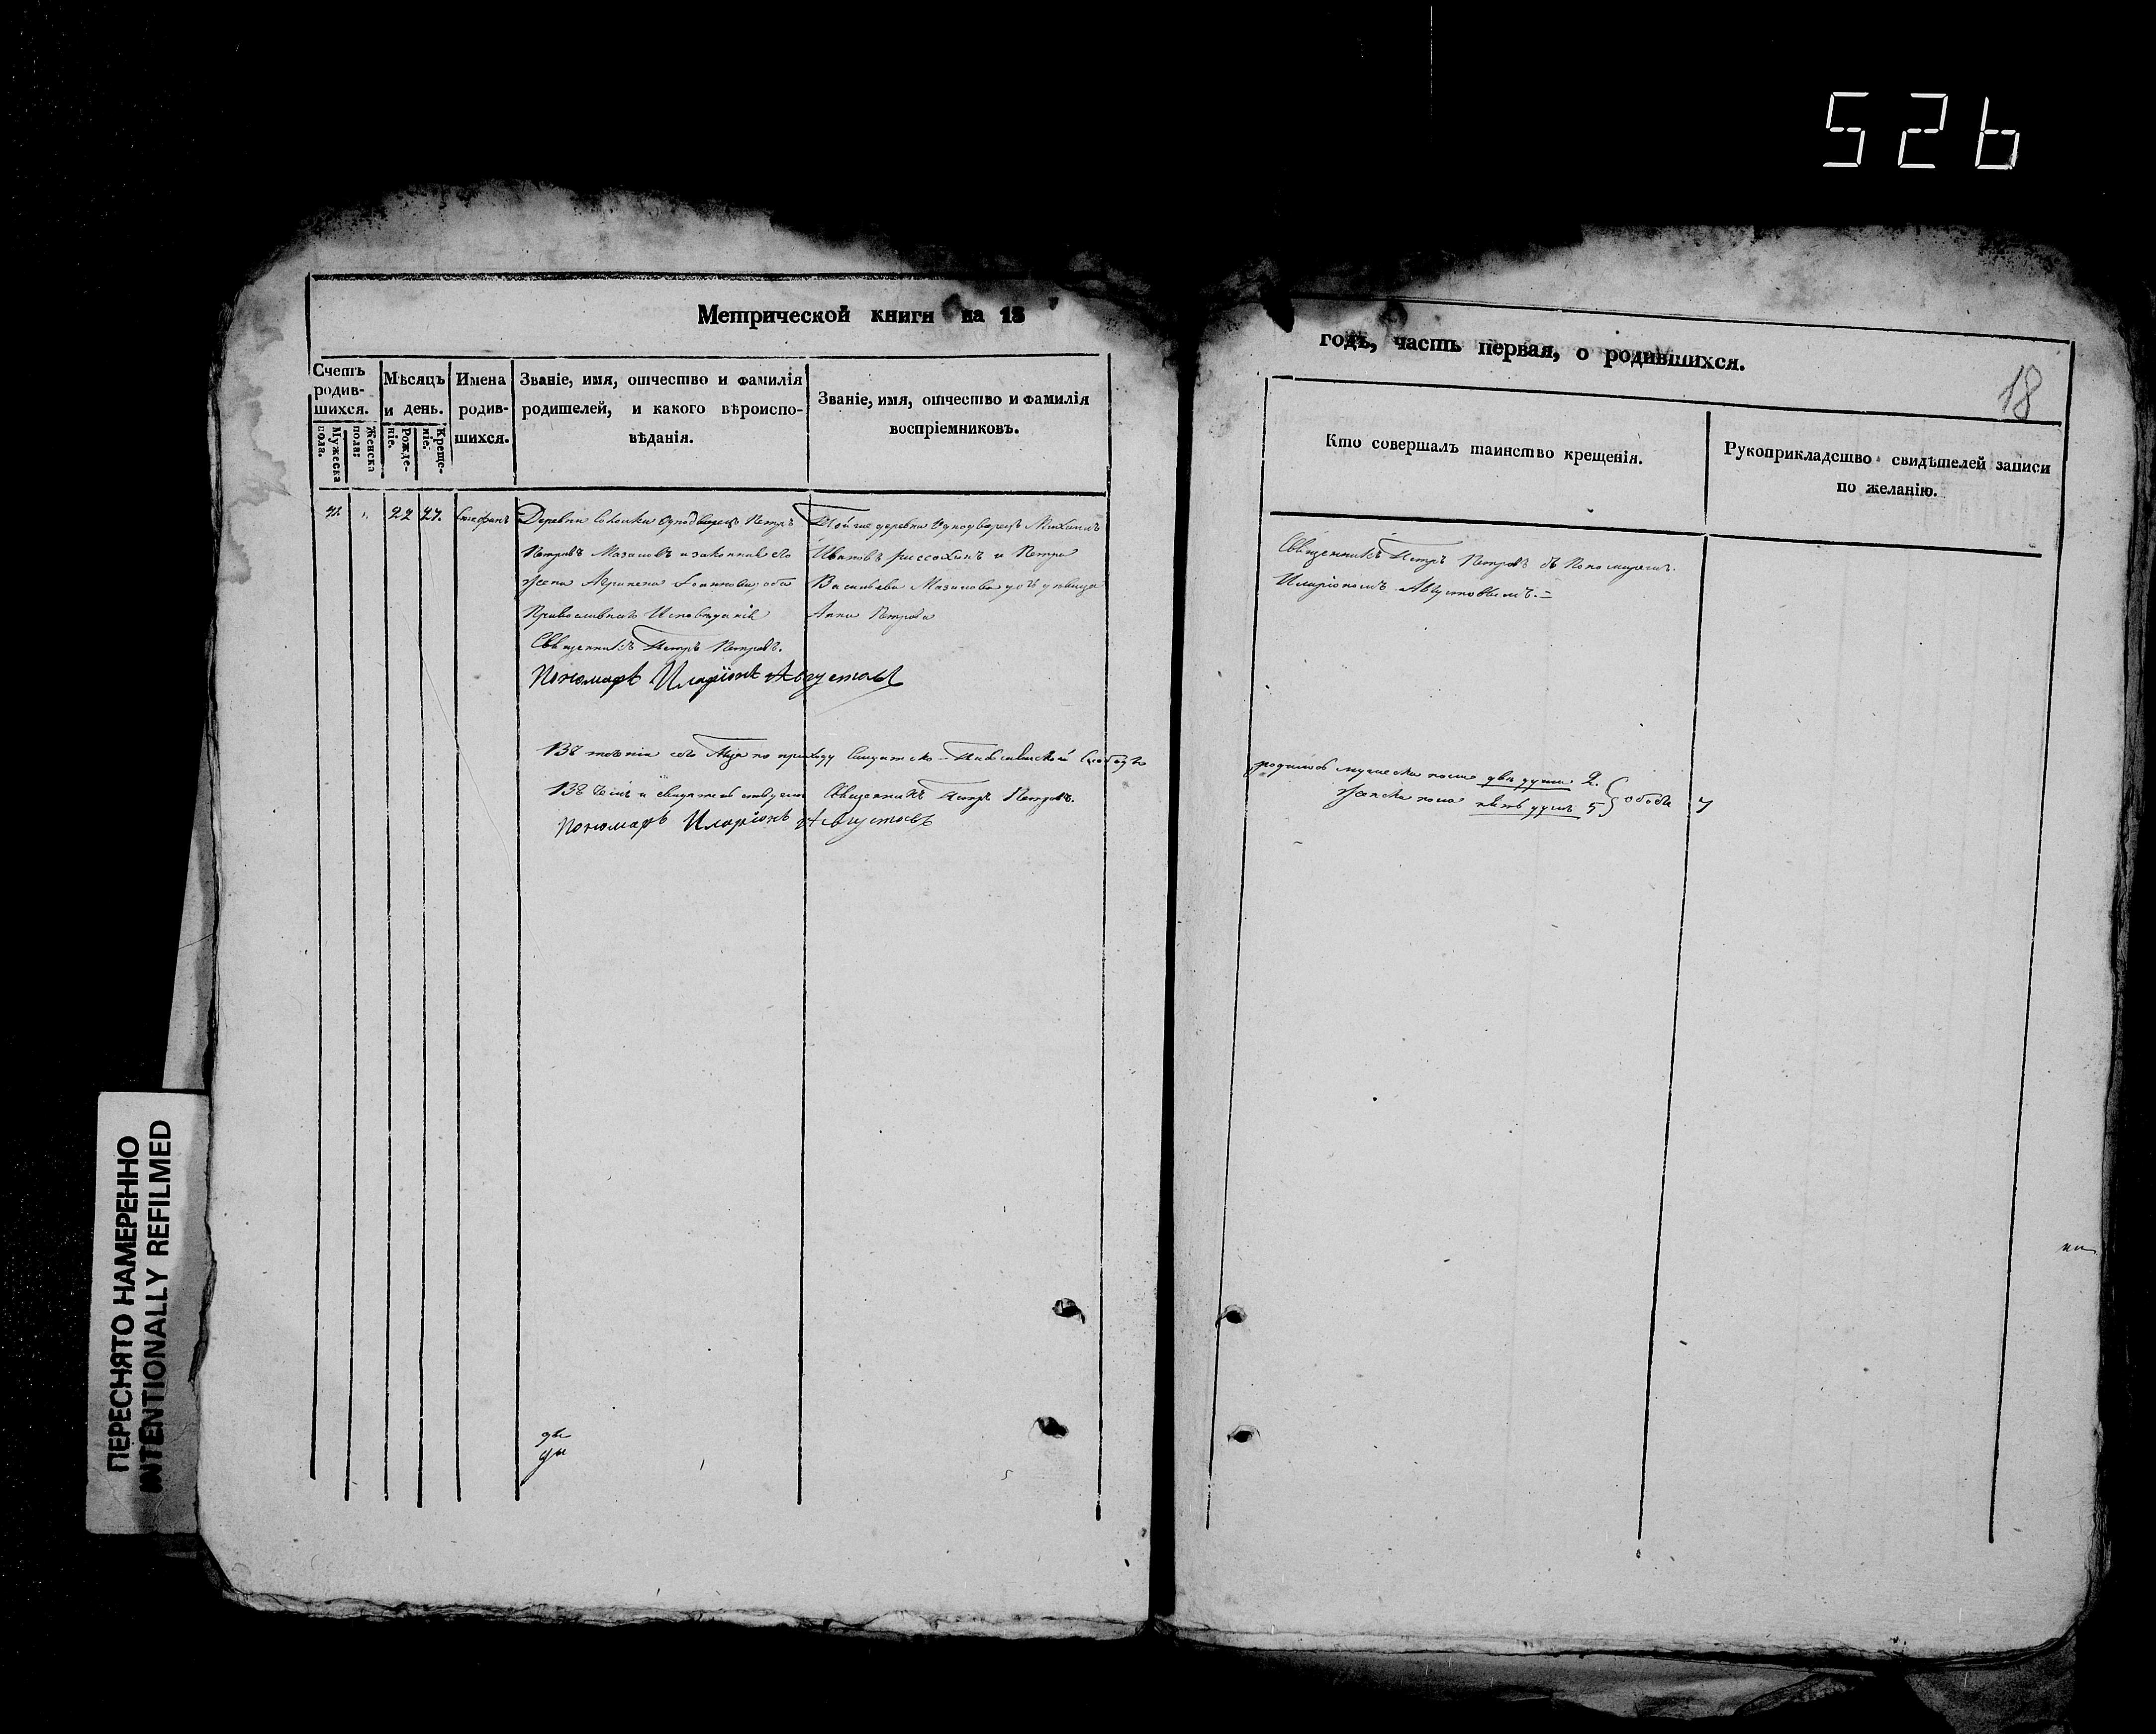 526
Метрической книги на 18
годъ, часть первая, о родившихся.
18
Счетъ родив-шихся.
Мужеска пола.
Женска пола:
Мѣсяцъ и день.
Рожде-ніе.
Креще-ніе.
Имена родив-шихся.
Званіе, имя, отчество и фамилія родителей, и какого вѣроиспо-вѣданія.
Званіе, имя, отчество и фамилія воспріемниковъ.
Кто совершалъ таинство крещенія.
Рукоприкладство свидѣтелей записи по желанію.
22 27. Стефанъ
Деревни Однодворецъ Петръ
Петровъ Мазаловъ и законная его
жена Агрипена оба
Православнаго Исповѣданія
Священникъ Петръ Петровъ.
Пономарь Иларіонъ Августовъ
Той же деревни Однодворецъ Михаилъ
Ивановъ и Петра
Васильева Мазалова
Анна Петрова
Священникъ Петръ Петровъ съ Пономаремъ
Иларіономъ Августовымъ.=
Въ теченіи сего по приходу
родилось мужеска пола двѣ души 2.
женска пола пять душъ 5 обоего 7
Въ чемъ и свидѣтельствуемъ Священникъ Петръ Петровъ.
Пономарь Иларіонъ Августовъ
ПЕРЕСНЯТО НАМЕРЕННО
INTENTIONALLY REFILMED